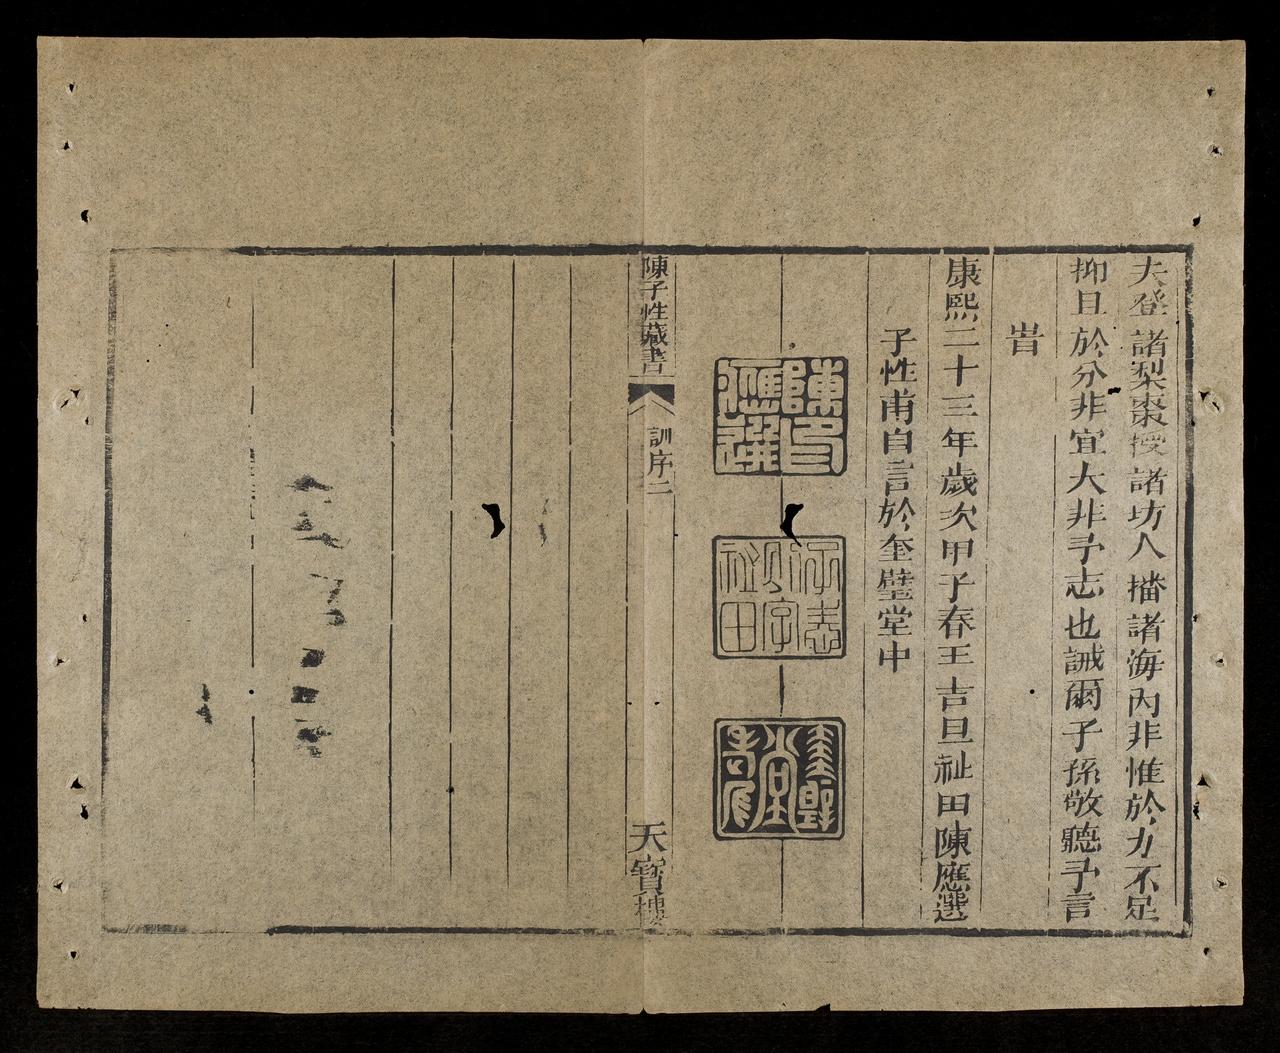 夫登諸梨棗授諸坊人播諸海內非惟於力不足
抑且於分非宜大非予志也誡爾子孫敬聽予言
旹
康熙二十三年歲次甲子春王吉旦祉田陳應選
子性甫自言於奎璧堂中
陳印應選
祉田
奎璧堂
陳子性藏書
訓序二
天寶樓